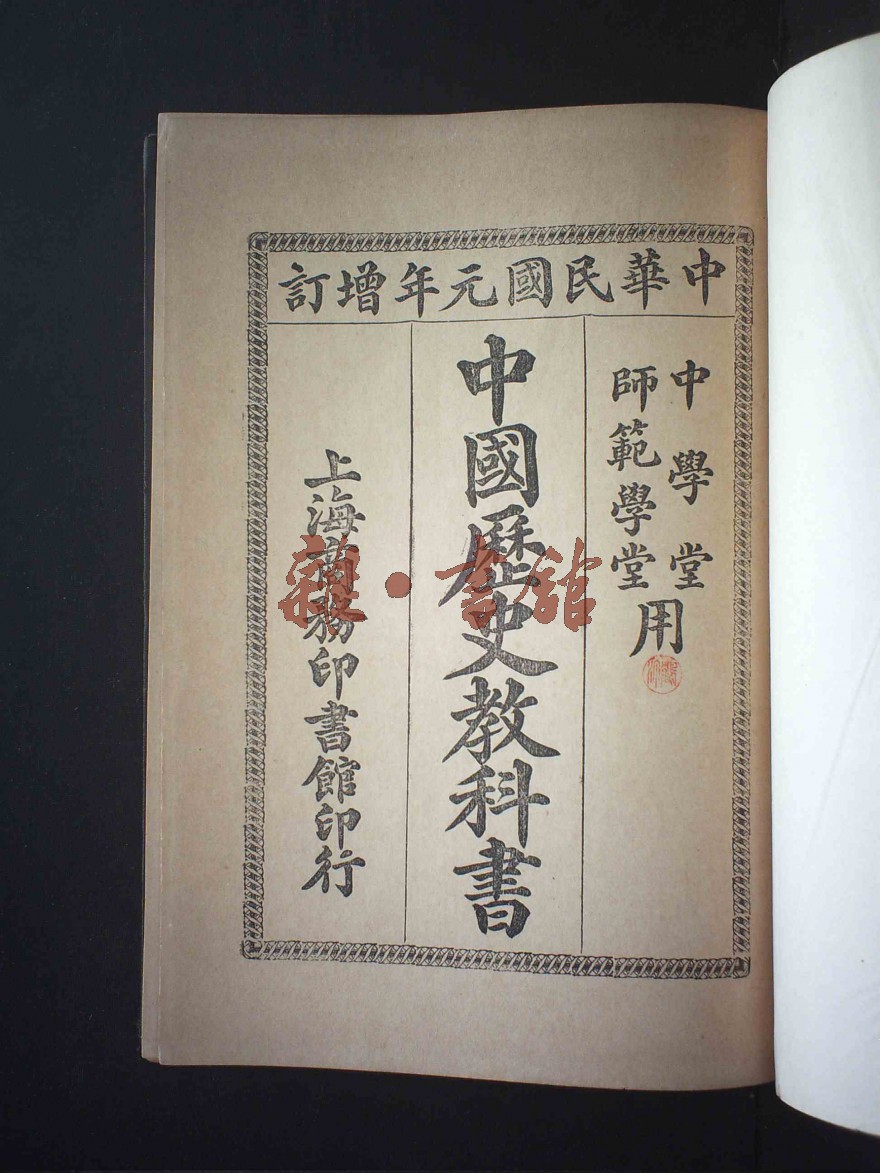 中華民國元年增訂
中學堂
師範學堂
用
中國歷史教科書
上海商務印書館印行
雜·書舘